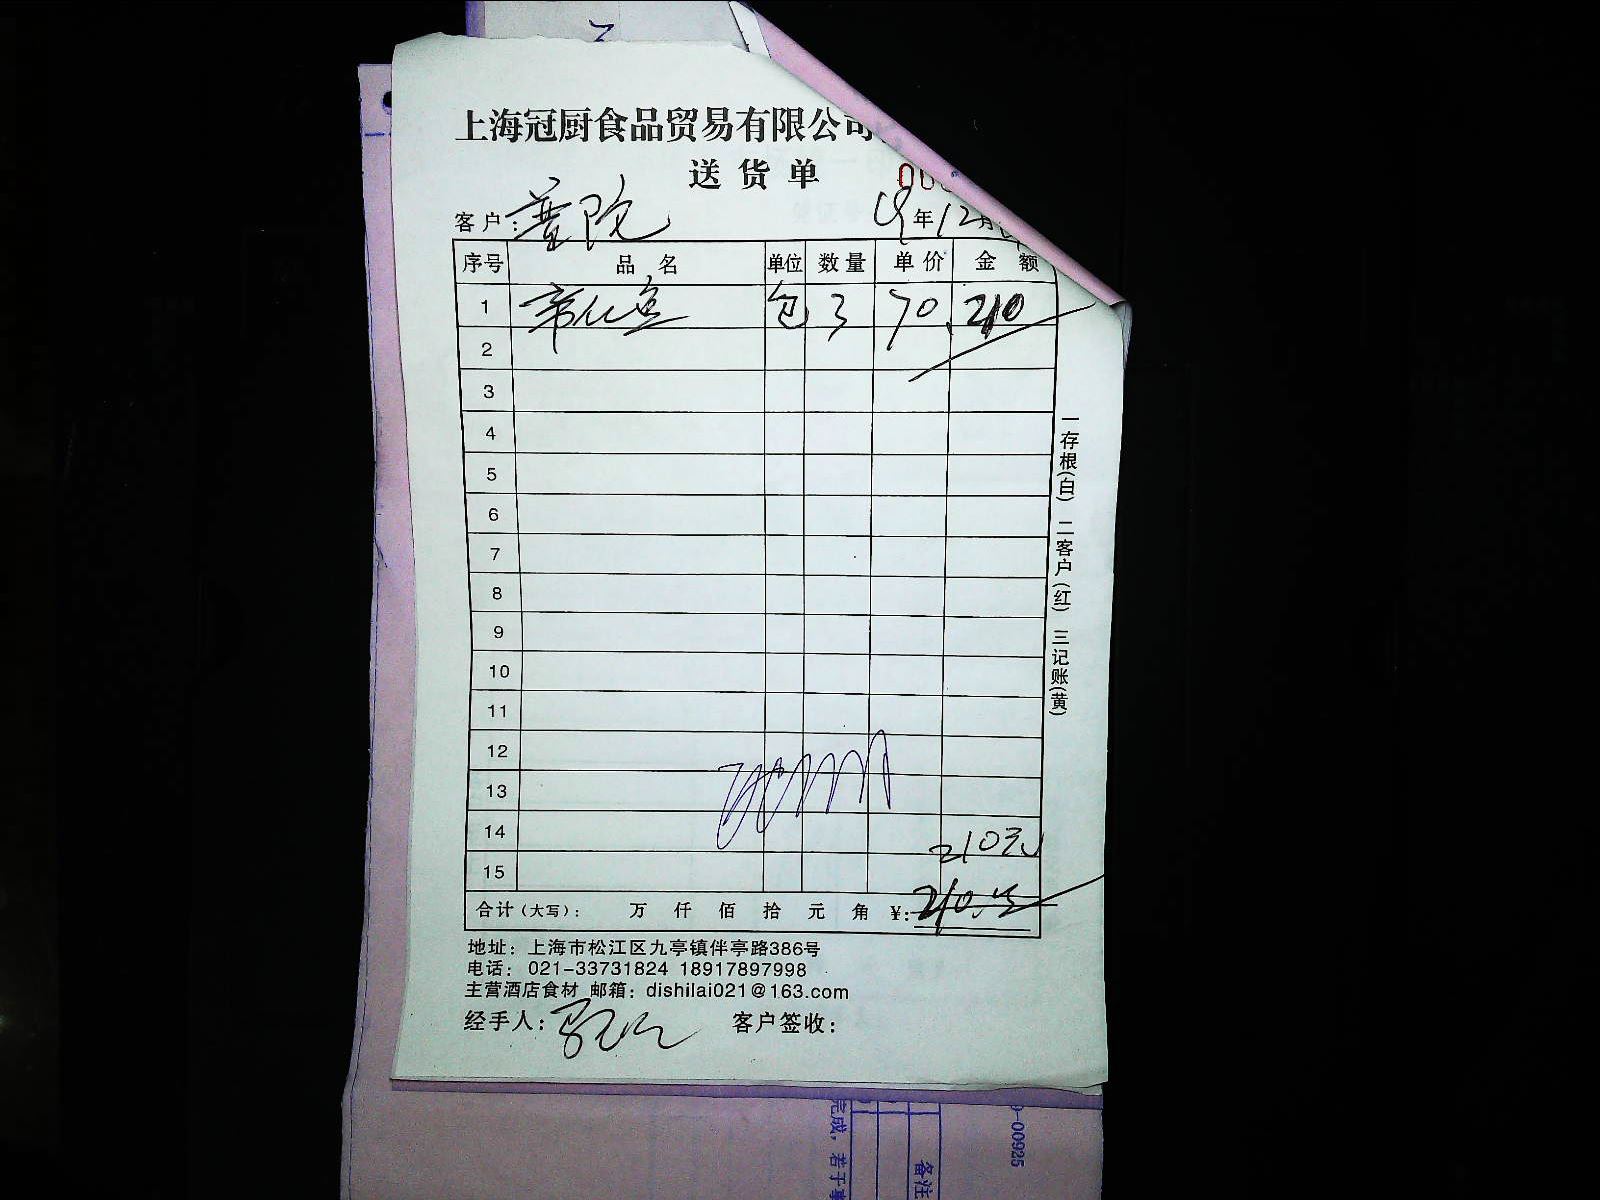 上海冠厨食品贸易有限公司
送货单
客户：普陀
19年12月
序号 品名 单位 数量 单价 金额
1 包 3 70 210
2
3
4
5
6
7
8
9
10
11
12
13
14 210元
15
合计（大写）： 万 仟 佰 拾 元 角 ¥：210.
一存根(白) 二客户(红) 三记账(黄)
地址：上海市松江区九亭镇伴亭路386号
电话：021-33731824 18917897998
主营酒店食材 邮箱：dishilai021@163.com
经手人： 客户签收：
-00925
完成，若于
备注